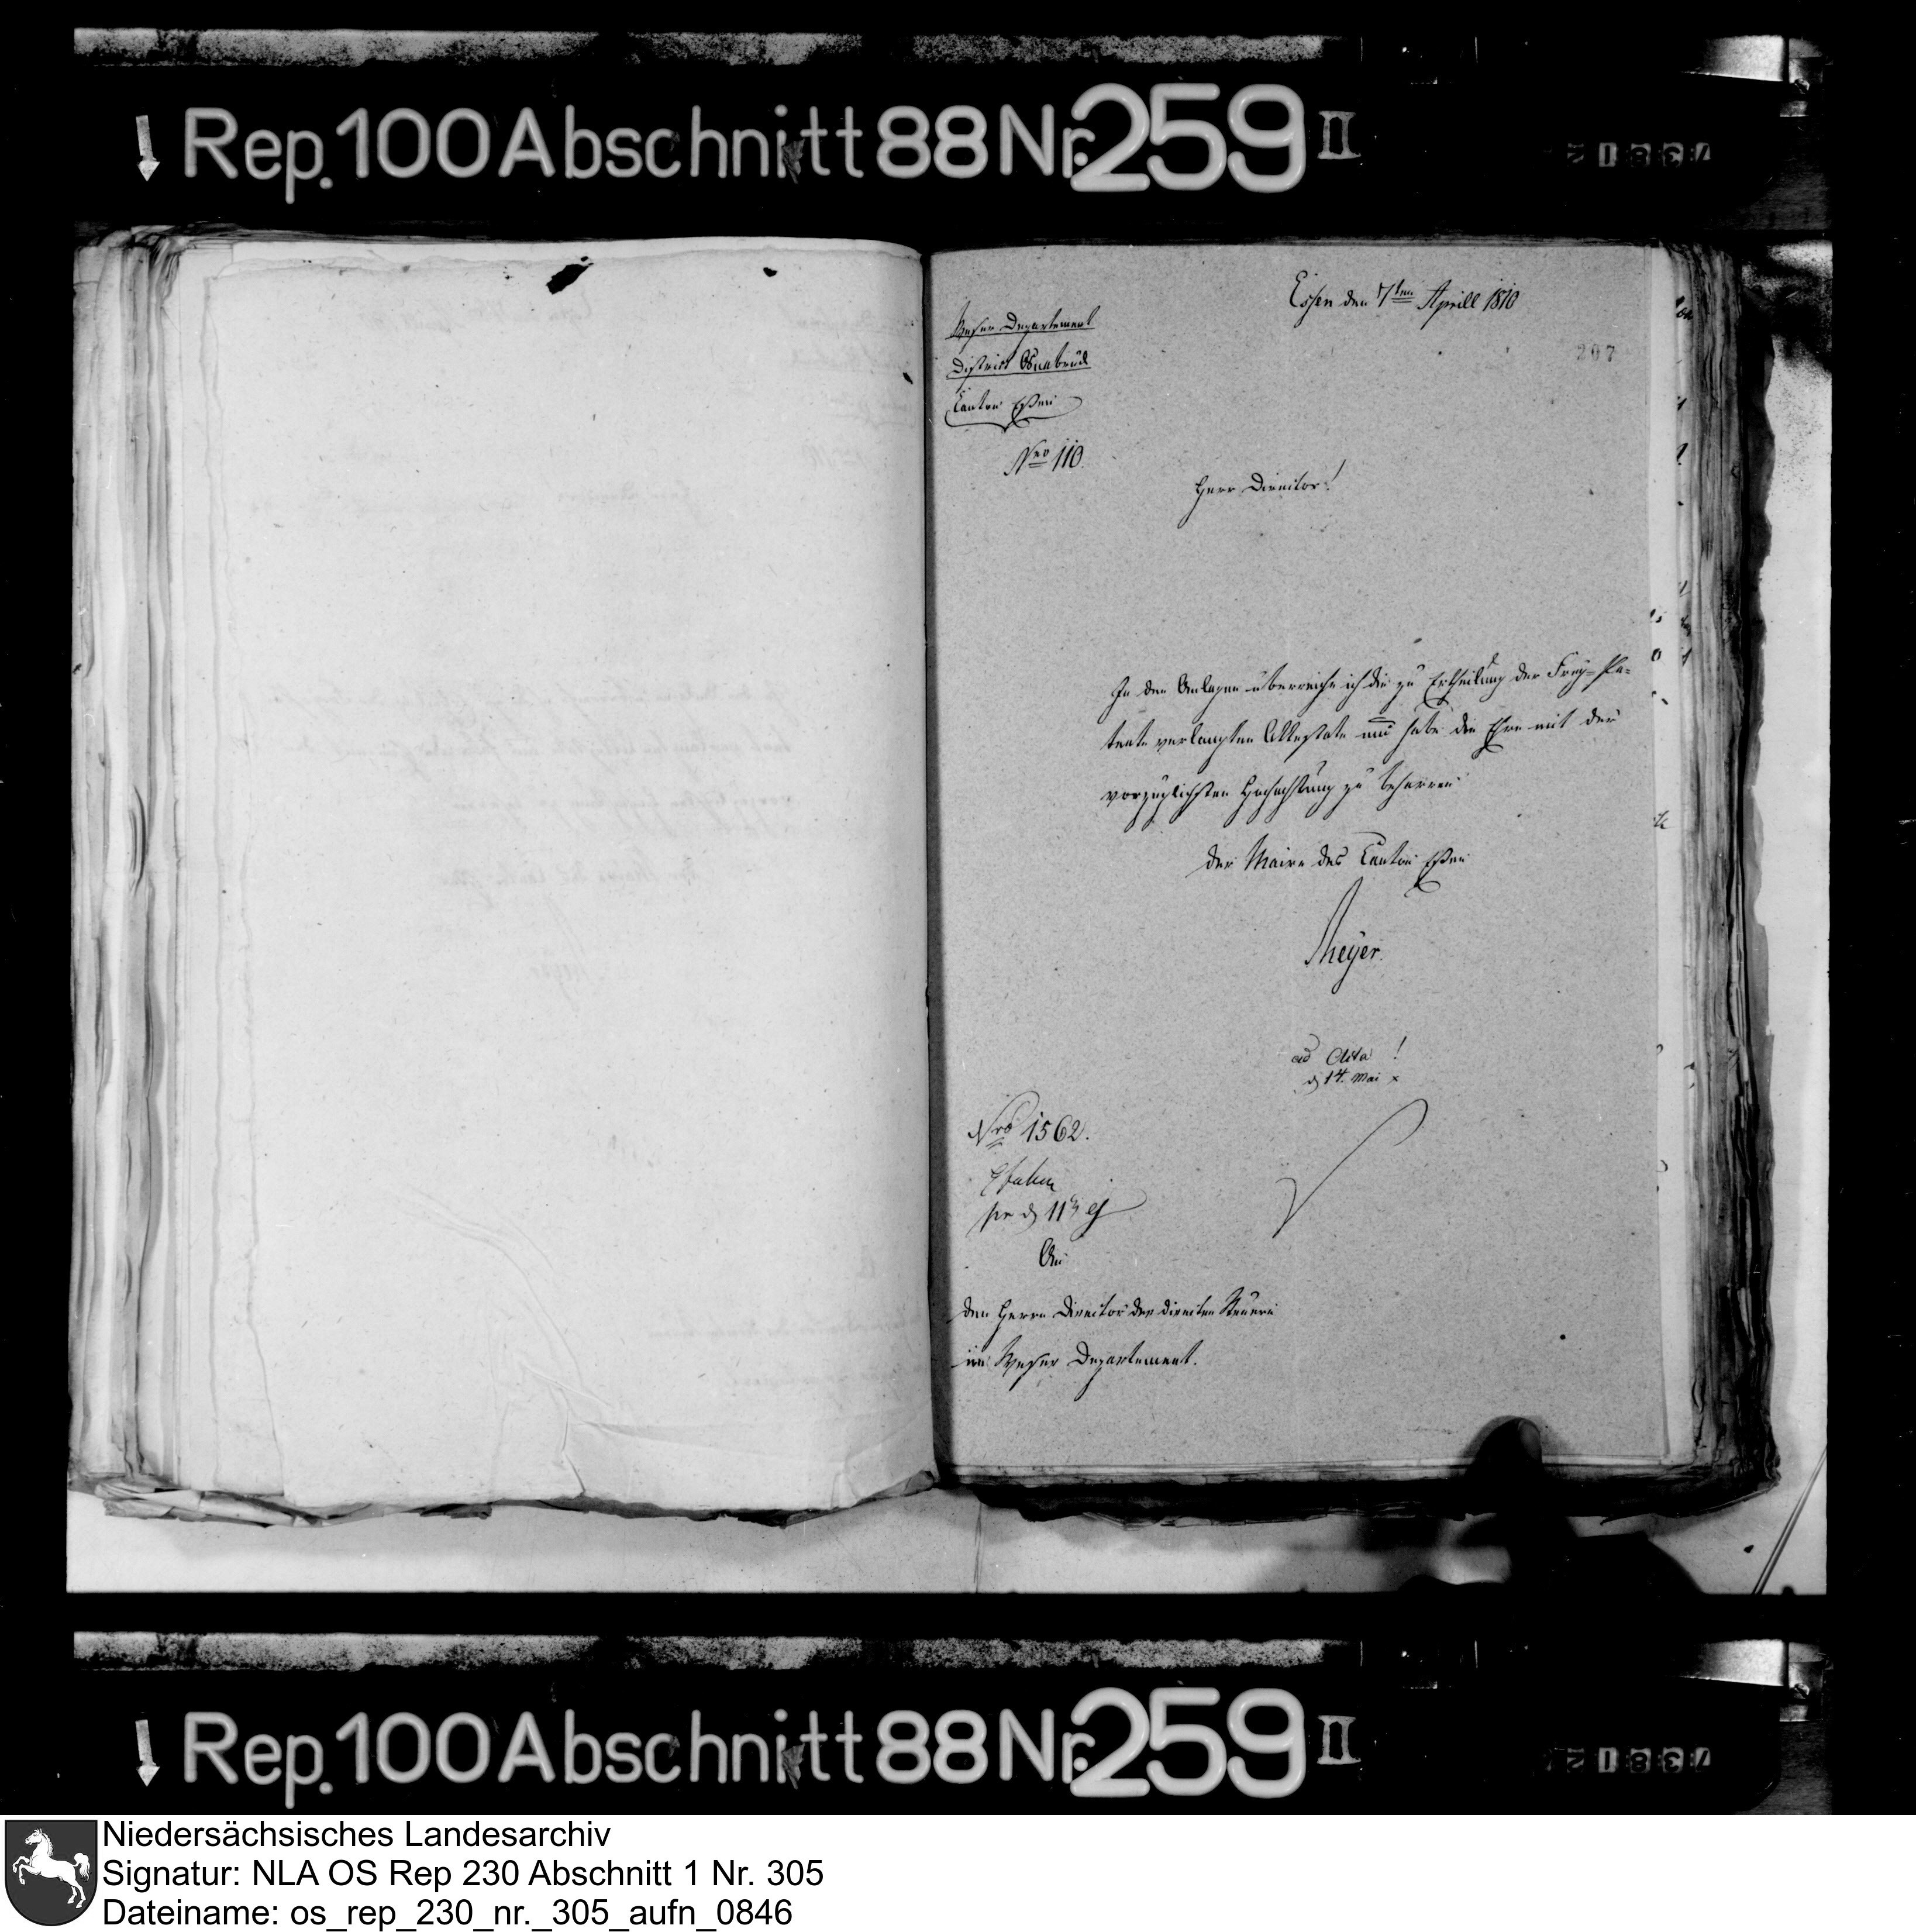 Rep. 100 Abschnitt 88 Nr. 259 II
Essen den 7ten Aprill 1810
Weser Departement
District Osnabrück
Canton Essen
207
Nro 110
Herr Director!
In den Anlagen überreiche ich die zu Ertheilung der Frey-Pa-
tente verlangten Attestate und habe die Ehre mit der
vorzüglichsten Hochachtung zu beharren
der Maire des Canton Essen
Meyer.
ad Acta!
d 14. Mai
Nro 1562.
pr d 11
An
den Herrn Director der directen Steuern
im Weser Departement.
Rep. 100 Abschnitt 88 Nr. 259 II
Niedersächsisches Landesarchiv
Signatur: NLA OS Rep 230 Abschnitt 1 Nr. 305
Dateiname: os_rep_230_nr._305_aufn_0846